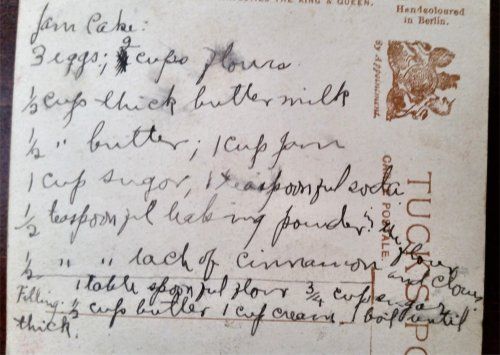 THE KING & QUEEN.
Handcoloured
in Berlin.
By Appointment.
CARTE POSTALE.
TUCK'S PO
Jam Cake:
3 eggs; 2 cups flour
1/2 cup thick buttermilk
1/2 " butter; 1 cup Jam
1 cup sugar, 1 teaspoonful soda
1/2 teaspoonful baking powder in the flour
1/2 " " each of cinnamon and cloves
Filling: 1 table spoonful flour 3/4 cup sugar
1/2 cup butter 1 cup cream boil until
thick.